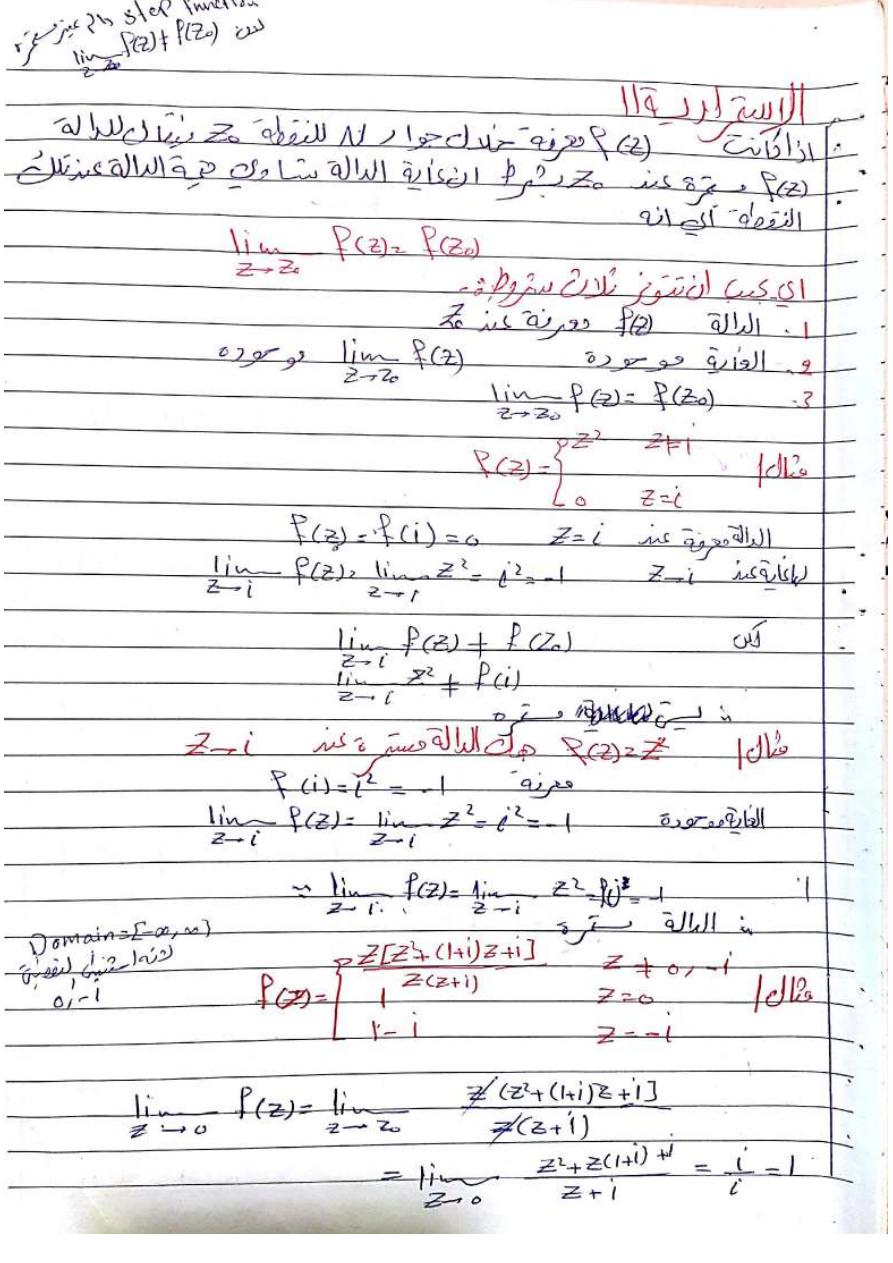 step function
lim z→z₀ f(z) ≠ f(z₀) لان
الاستمرارية //
اذا كانت f(z) معرفة خلال جوار ما للنقطة z₀ فيقال للدالة
f(z) مستمرة عند z₀ بشرط ان غاية الدالة تساوي قيمة الدالة عند تلك
النقطة اي انه
lim z→z₀ f(z) = f(z₀)
اي يجب ان تتوفر ثلاث شروط :-
1. الدالة f(z) معرفة عند z₀
2. الغاية موجودة lim z→z₀ f(z) موجوده
3. lim z→z₀ f(z) = f(z₀)
مثال / f(z) = { z² z≠i
0 z=i
الدالة معرفة عند z=i f(z) = f(i) = 0
لها غاية عند z→i lim z→i f(z) = lim z→i z² = i² = -1
لكن lim z→i f(z) ≠ f(z₀)
lim z→i z² ≠ f(i)
∴ ليست مستمره
مثال / f(z) = z² هل الدالة مستمرة عند z→i
معرفة f(i) = i² = -1
الغاية موجودة lim z→i f(z) = lim z→i z² = i² = -1
∵ lim z→i f(z) = lim z→i z² = f(i) = -1
∴ الدالة مستمرة
Domain = [-∞, ∞)
0, -i
مثال / f(z) = { z[z²+(1+i)z+i] / z(z+i) z ≠ 0, -i
1 z=0
1-i z=-i
lim z→0 f(z) = lim z→z₀ z[z²+(1+i)z+i] / z(z+i)
= lim z→0 z²+z(1+i)+i / z+i = i/i = 1